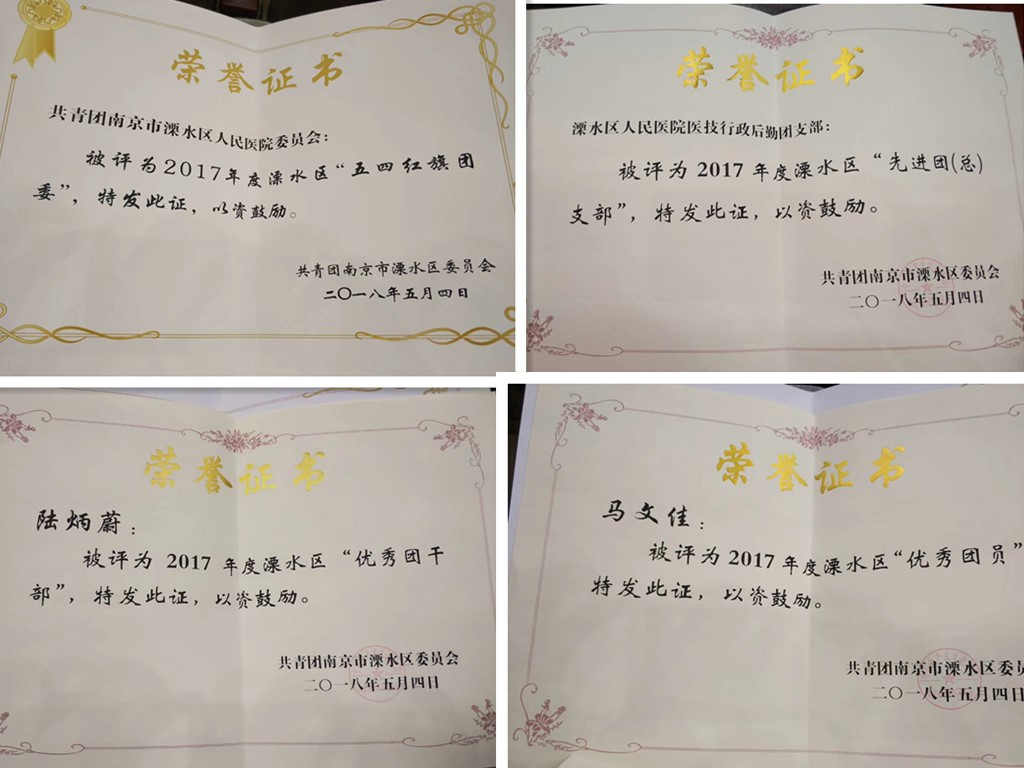 荣誉证书
共青团南京市溧水区人民医院委员会：
被评为2017年度溧水区“五四红旗团
委”，特发此证，以资鼓励。
共青团南京市溧水区委员会
二〇一八年五月四日
荣誉证书
溧水区人民医院医技行政后勤团支部：
被评为2017年度溧水区“先进团(总)
支部”，特发此证，以资鼓励。
共青团南京市溧水区委员会
二〇一八年五月四日
荣誉证书
陆炳蔚：
被评为2017年度溧水区“优秀团干
部”，特发此证，以资鼓励。
共青团南京市溧水区委员会
二〇一八年五月四日
荣誉证书
马文佳：
被评为2017年度溧水区“优秀团员”
特发此证，以资鼓励。
共青团南京市溧水区委员
二〇一八年五月四日